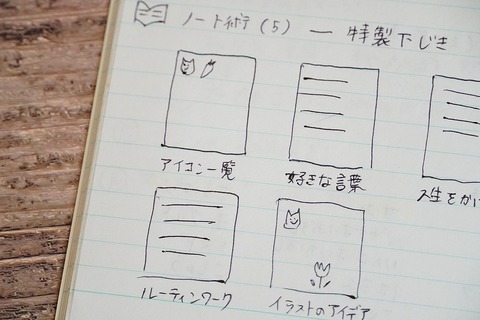 ノート術(5) ― 特製下じき
アイコン一覧
好きな言葉
人生をか
ルーティンワーク
イラストのアイデア